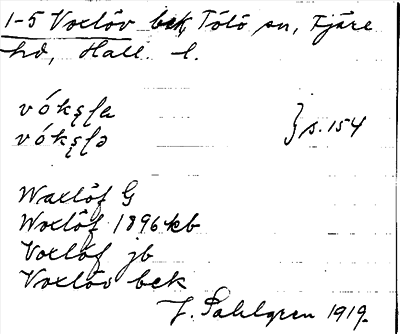 1-5 Voxlöv bek, Tölö sn, Fjäre
hd, Hall. l.
vóksļa } s. 154
vóksļə
Waxlöf G
Woxlöf 1896 kb
Voxlöf jb
Voxlöv bek
J. Sahlgren 1919.